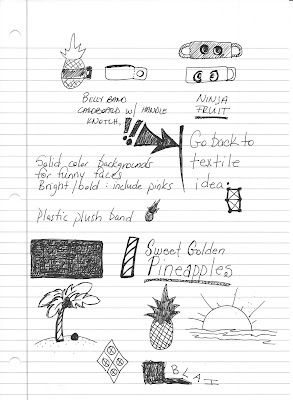 BELLY BAND
CARDBOARD w/ HANDLE
KNOTCH.
NINJA
FRUIT
!!
Go back to
textile
idea.
Solid color backgrounds
for funny faces
Bright/bold: include pinks
Plastic plush band
Sweet Golden
Pineapples
BLAI